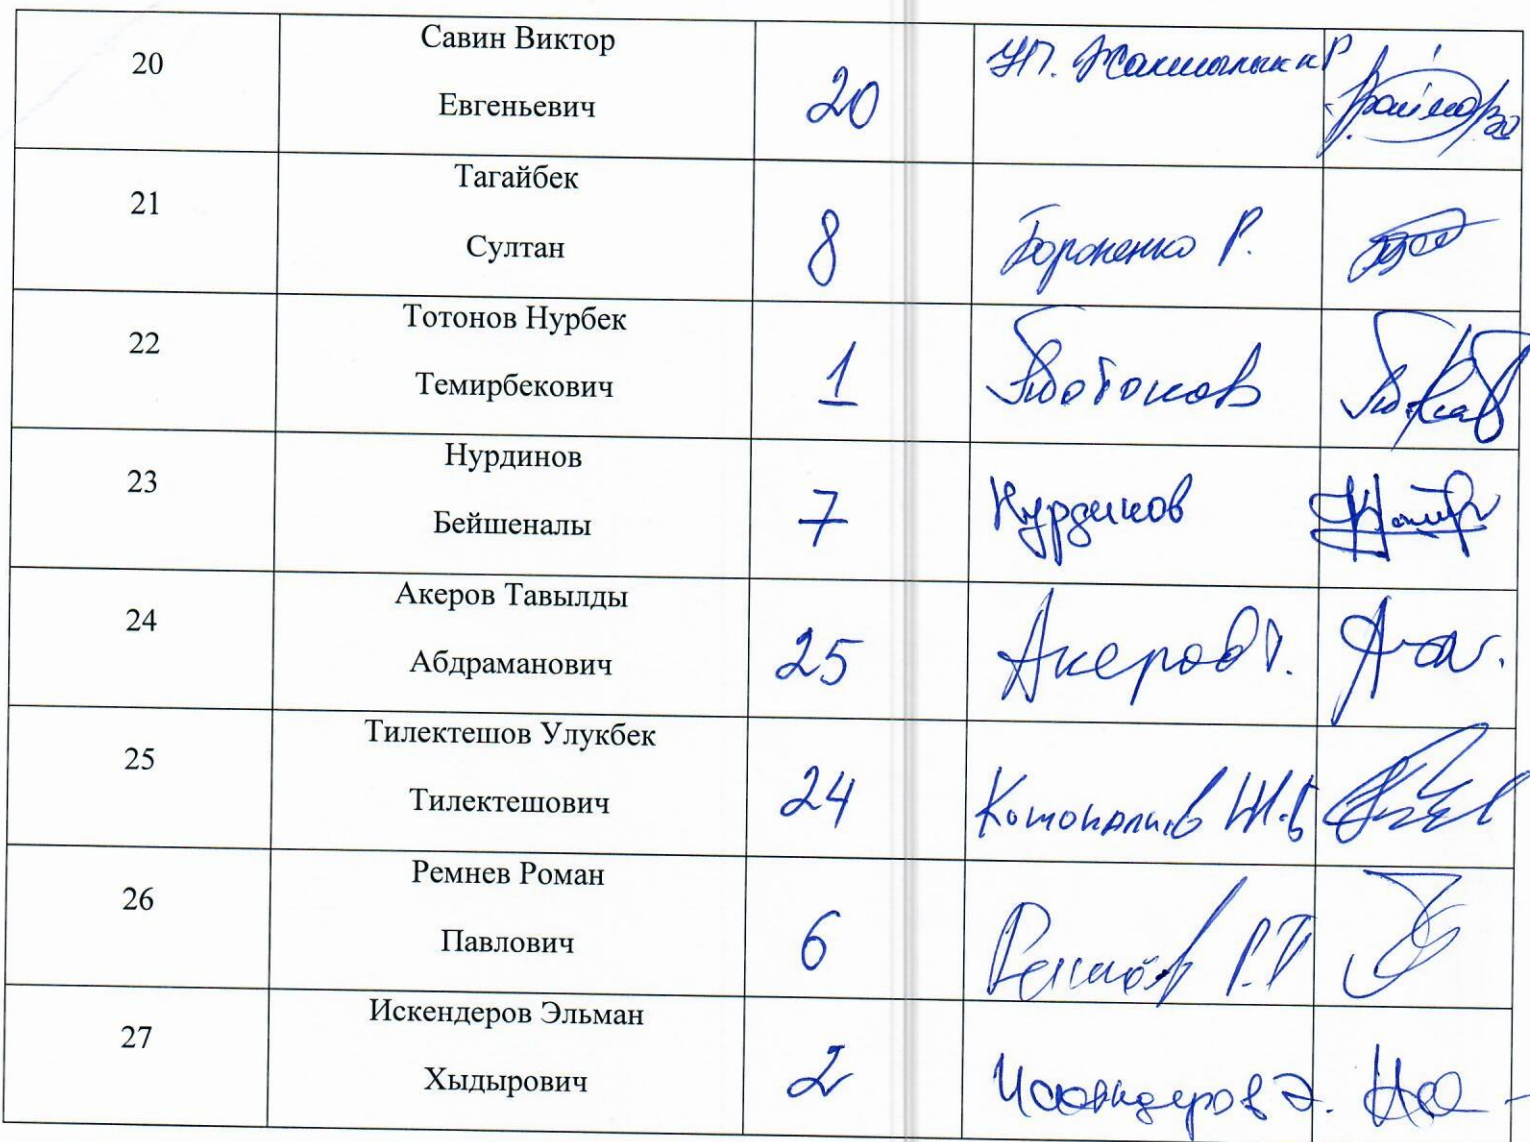 20
Савин Виктор
Евгеньевич
20
21
Тагайбек
Султан
8
Бороненко Р.
22
Тотонов Нурбек
Темирбекович
1
Тотонов
23
Нурдинов
Бейшеналы
7
Нурдинов
24
Акеров Тавылды
Абдраманович
25
Акеров Т.
25
Тилектешов Улукбек
Тилектешович
24
26
Ремнев Роман
Павлович
6
Ремнёв Р.П
27
Искендеров Эльман
Хыдырович
2
Искендеров Э.